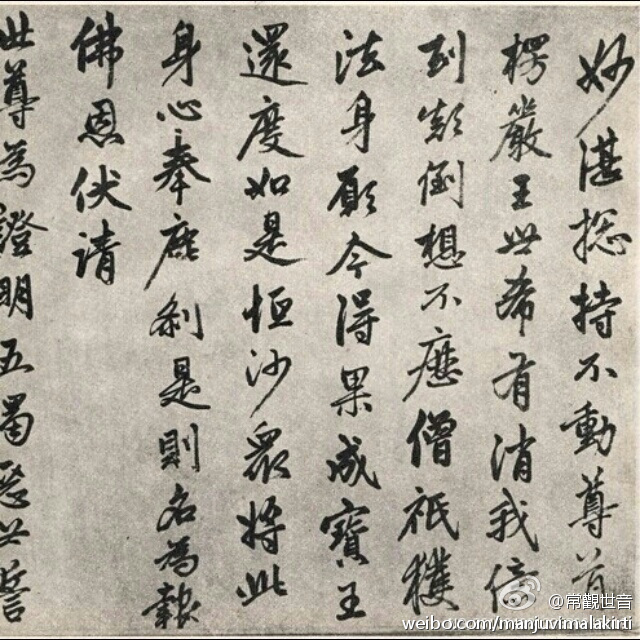 妙湛捴持不動尊首
楞嚴王世希有消我億
劫顛倒想不歷僧祇穫
法身願今得果成寶王
還度如是恒沙眾將此
身心奉塵剎是則名為報
佛恩伏請
世尊為證明五濁惡世誓
@常觀世音
weibo.com/manjuvimalakirti